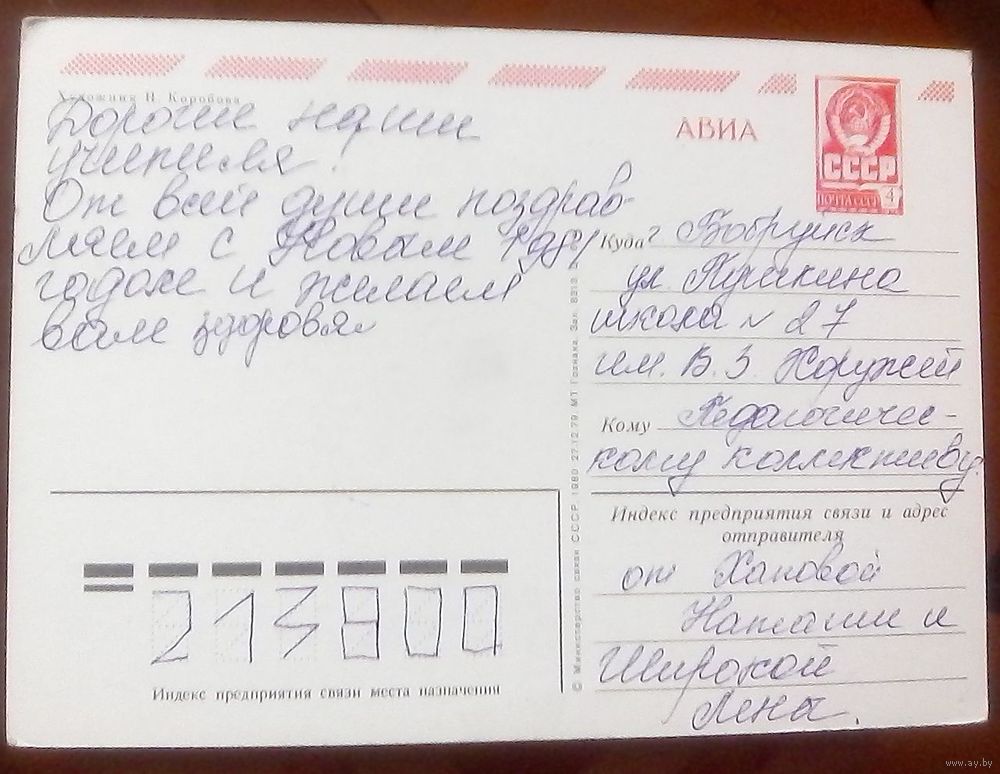 Художник Н. Коробова
АВИА
СССР
ПОЧТА СССР
4
Дорогие наши
учителя!
От всей души поздрав-
ляем с Новым 1981
годом и желаем
вам здоровья
Куда г. Бобруйск
ул. Пушкина
школа N 27
им. В. З. Хоружей
Кому Педагогичес-
кому коллективу.
Индекс предприятия связи и адрес
отправителя
от Хановой
Наташи и
Широкой
Лены.
213800
Индекс предприятия связи места назначения
© Министерство связи СССР. 1980. 27.12.79. МТ Гознака. Зак.
www.ay.by